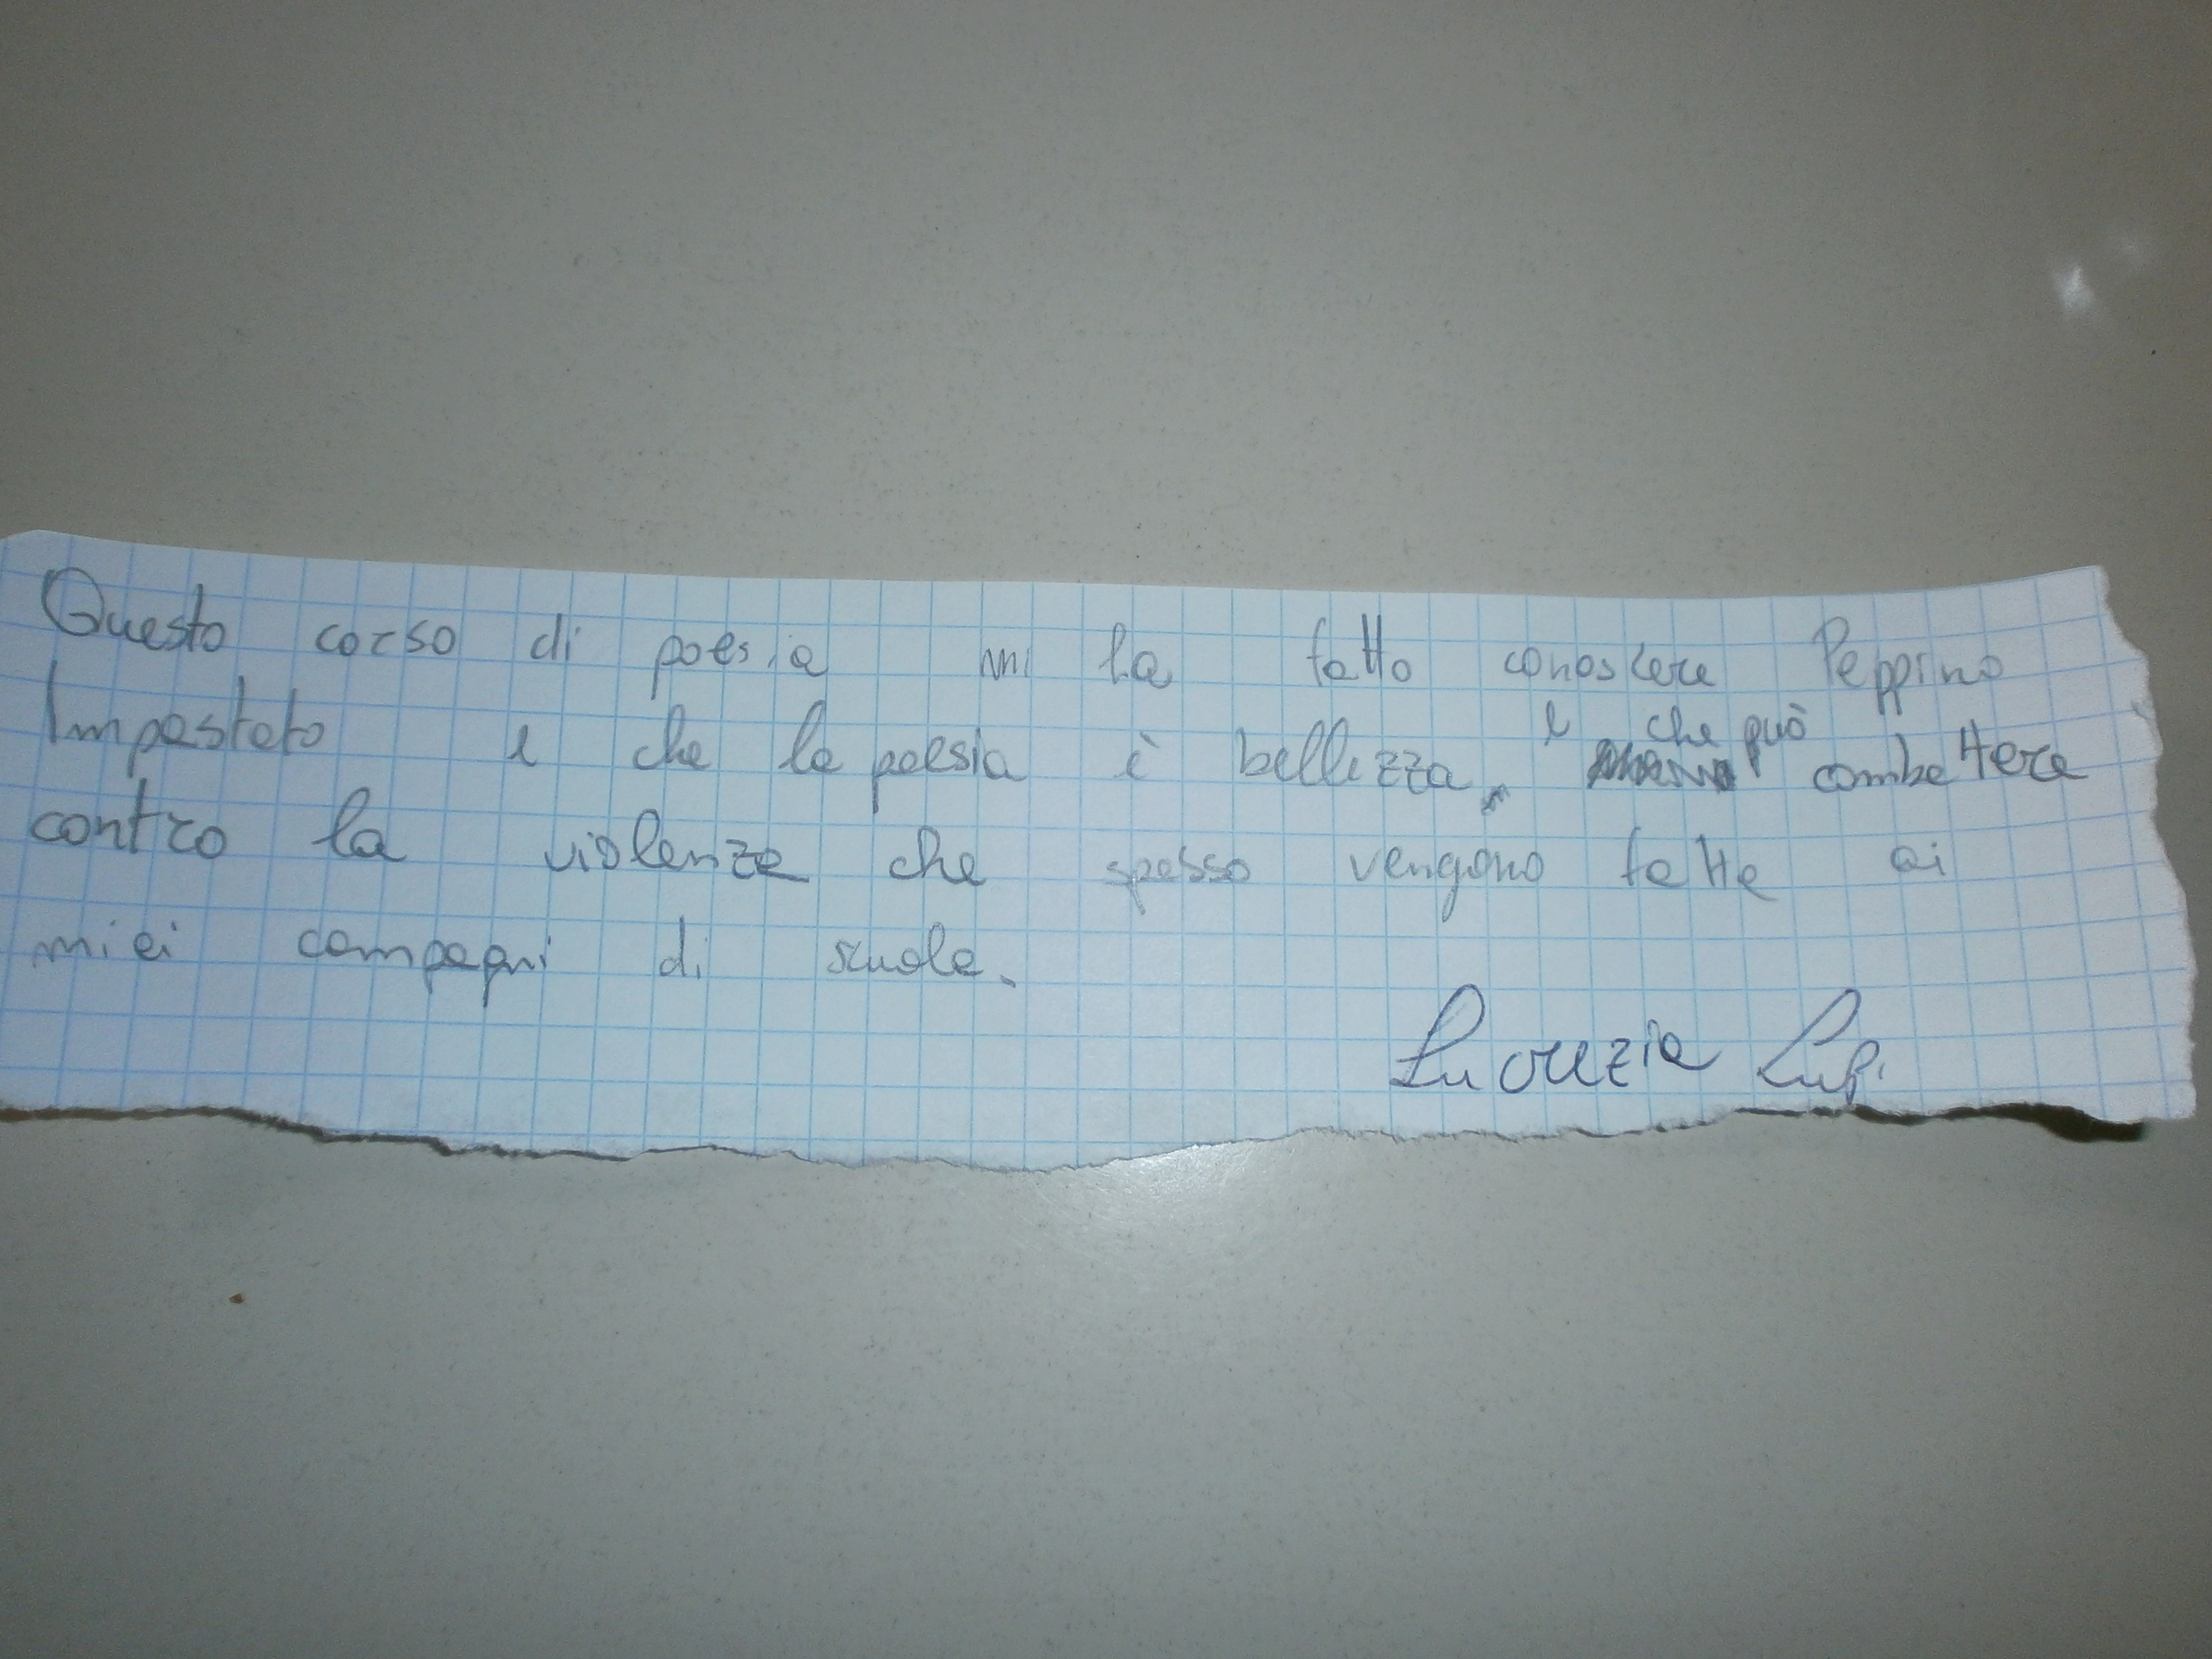 Questo corso di poesia mi ha fatto conoscere Peppino
Impastato e che la poesia è bellezza, e che può combattere
contro la violenza che spesso vengono fatte ai
miei compagni di scuola.
Lucrezia Lupi